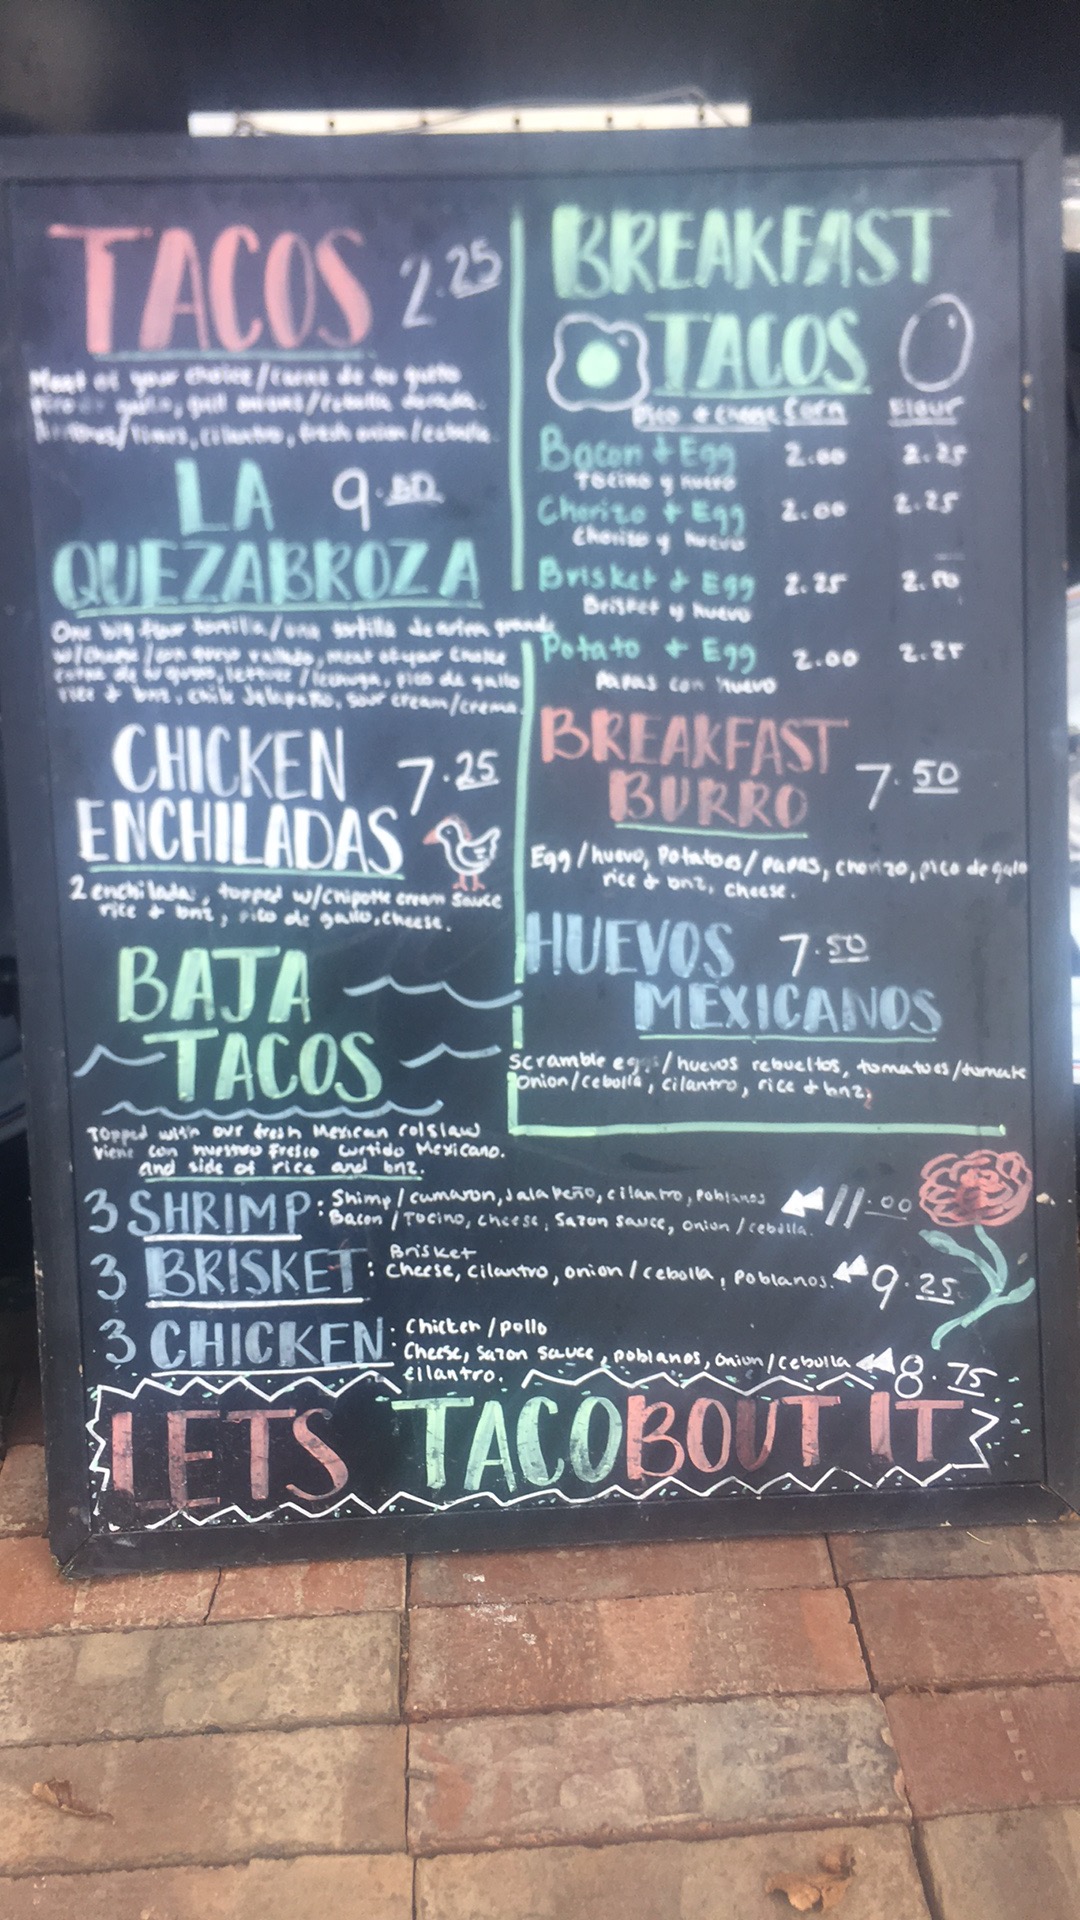 TACOS 2.25
Meat of your choice/carne de tu gusto
gallo, grill onions/cebolla dorada.
limes, cilantro, fresh onion/cebolla.
LA 9.50
QUEZABROZA
One big flour tortilla/una tortilla de arina grande
w/cheese/con queso rallado, meat of your choice
carne de tu gusto, lettuce/lechuga, pico de gallo
rice & bnz, chile Jalapeño, sour cream/crema.
CHICKEN 7.25
ENCHILADAS
2 enchilada, topped w/chipotle cream sauce
rice & bnz, pico de gallo, cheese.
BAJA
TACOS
Topped with our fresh Mexican Colslaw
Viene con nuestro Fresco Curtido Mexicano.
and side of rice and bnz.
BREAKFAST
TACOS
Pico & Cheese Corn Flour
Bacon & Egg 2.00 2.25
Tocino y huevo
Chorizo & Egg 2.00 2.25
Chorizo y huevo
Brisket & Egg 2.25 2.50
Brisket y huevo
Potato & Egg 2.00 2.25
Papas con huevo
BREAKFAST
BURRO 7.50
Egg/huevo, Potatoes/papas, chorizo, pico de gallo
rice & bnz, cheese.
HUEVOS 7.50
MEXICANOS
Scramble eggs/huevos rebueltos, tomatoes/tomate
Onion/cebolla, cilantro, rice & bnz,
3 SHRIMP: Shimp/camaron, Jalapeño, cilantro, Poblanos 11.00
Bacon/Tocino, cheese, Sazon sauce, onion/cebolla.
3 BRISKET: Brisket
Cheese, cilantro, onion/cebolla, poblanos. 9.25
3 CHICKEN: Chicken/pollo
Cheese, Sazon sauce, poblanos, onion/cebolla 8.75
cilantro.
LETS TACOBOUT IT